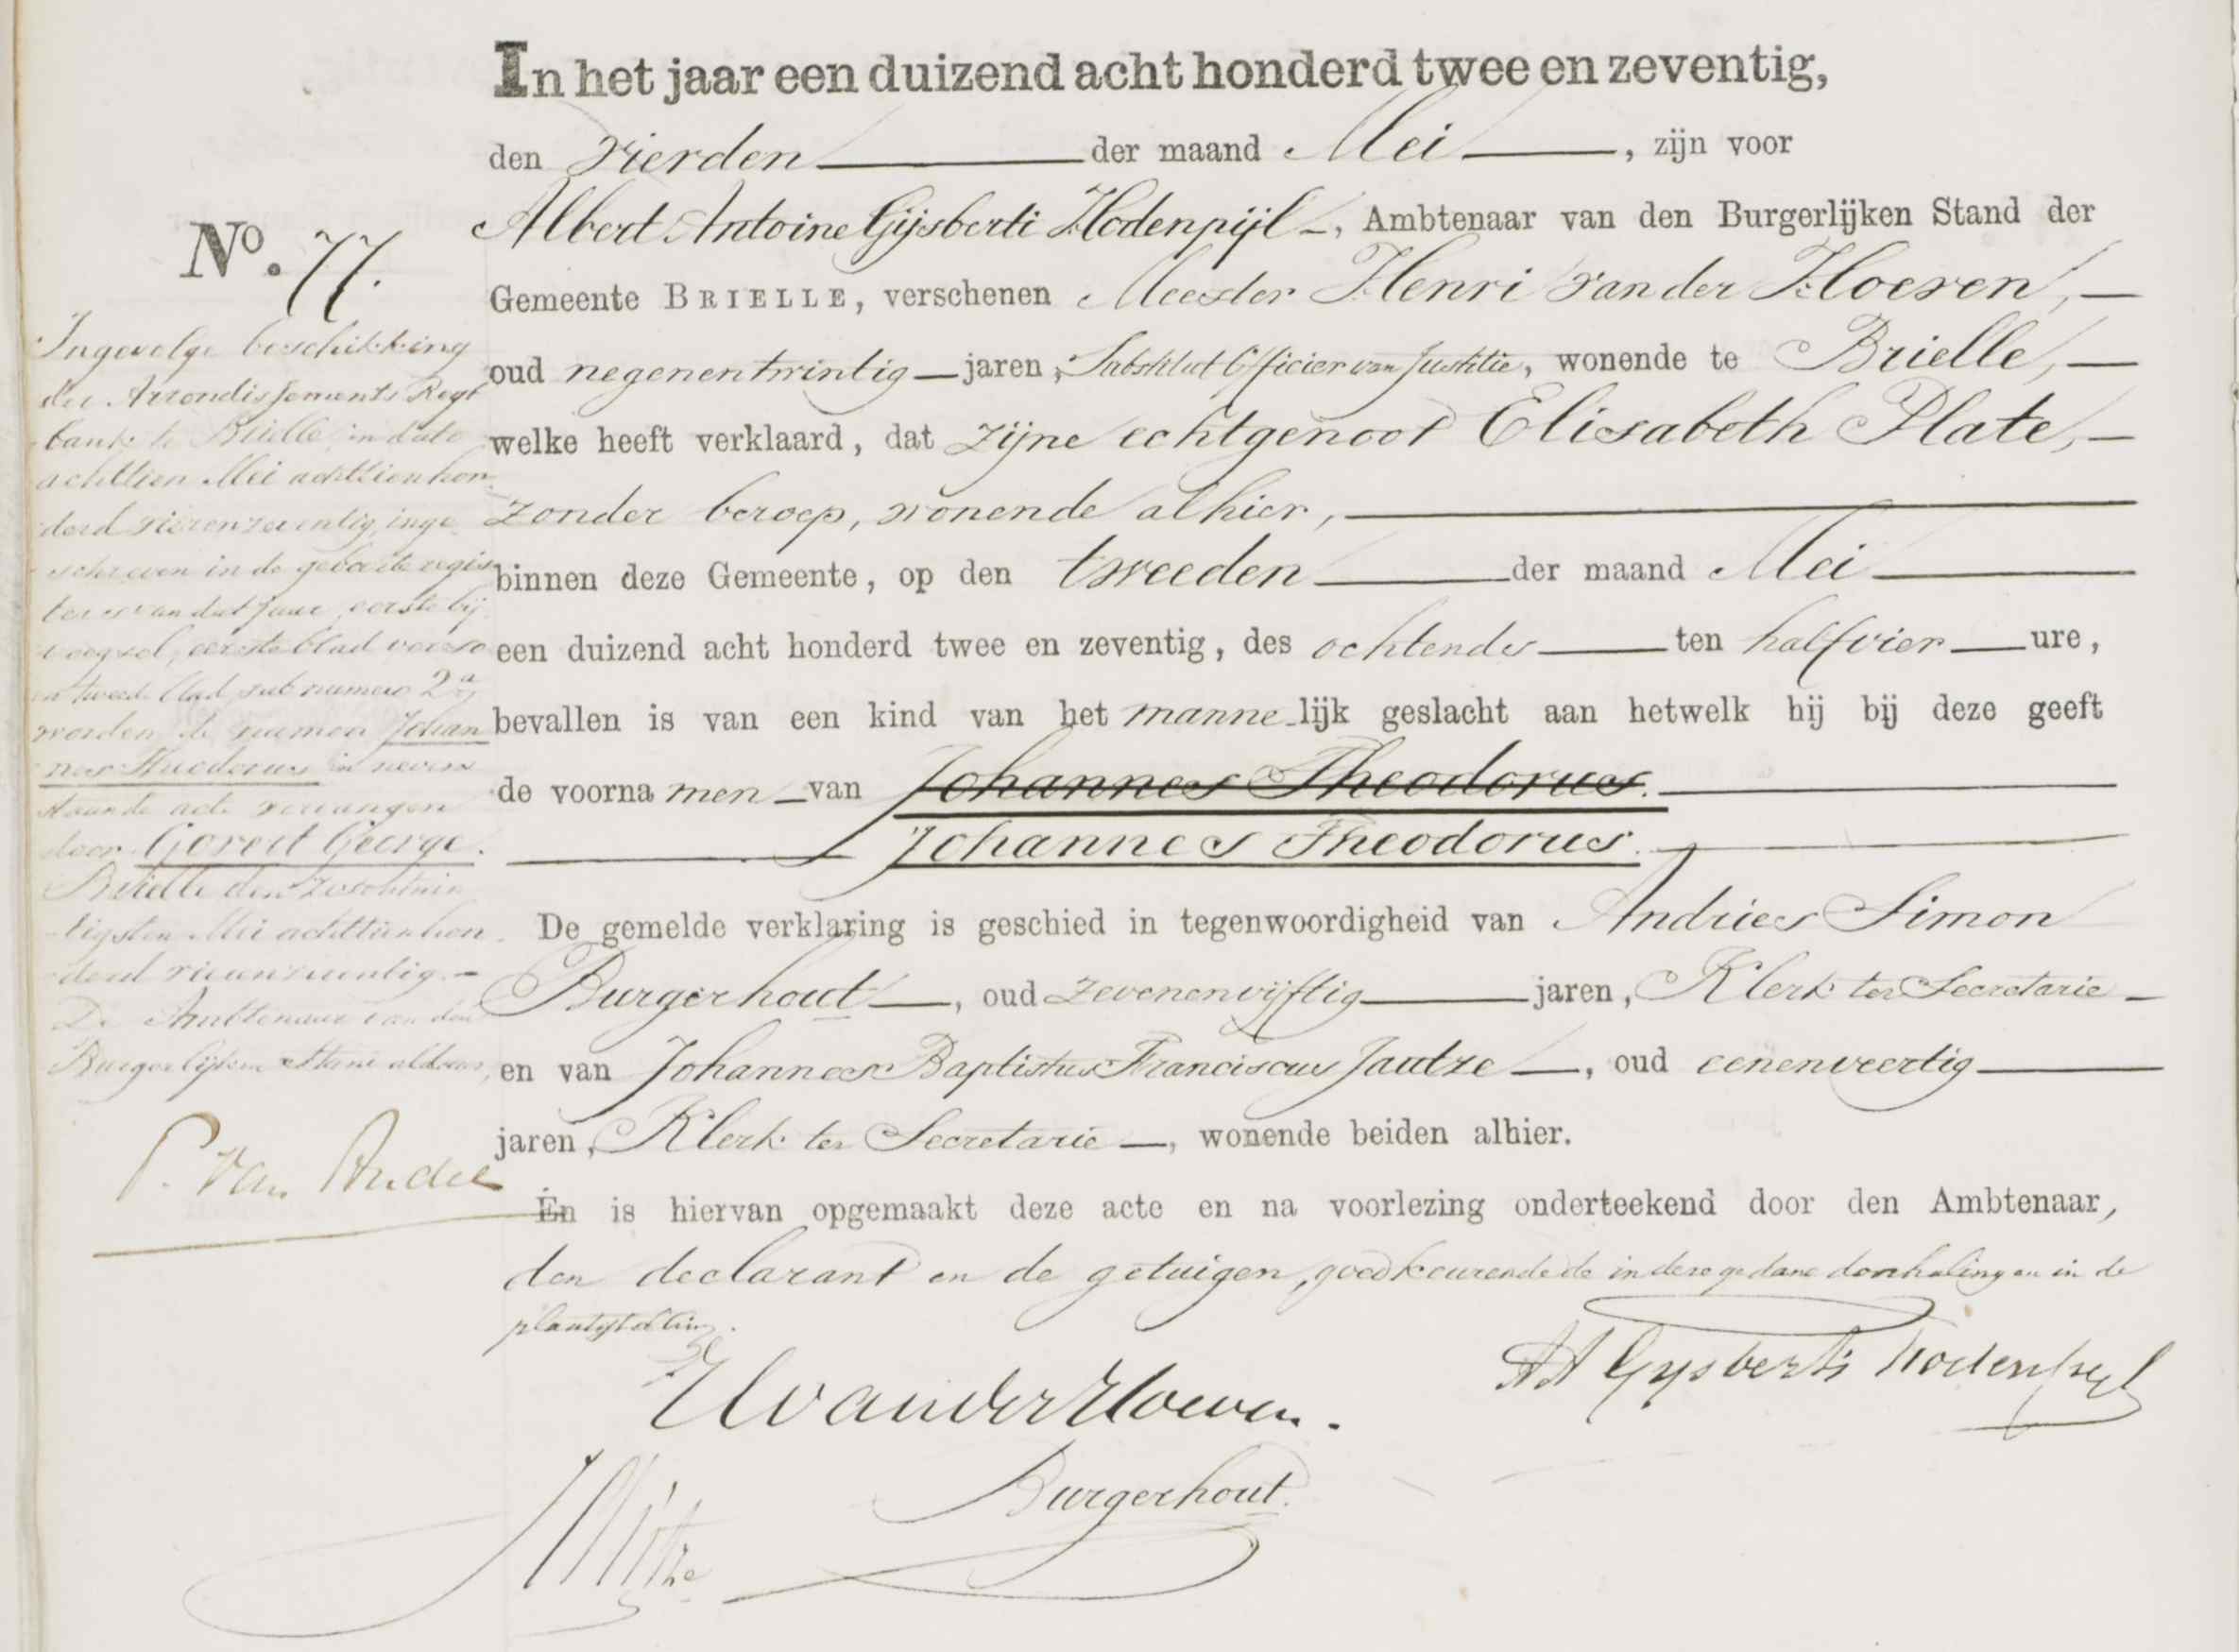 In het jaar een duizend acht honderd twee en zeventig,
den vierden der maand Mei, zijn voor
Albert Antoine Gijsberti Hodenpijl, Ambtenaar van den Burgerlijken Stand der
Gemeente BRIELLE, verschenen Meester Henri van der Hoeven,
oud negenentwintig jaren, Substituut Officier van Justitie, wonende te Brielle,
welke heeft verklaard, dat zijne echtgenoot Elisabeth Plate,
zonder beroep, wonende alhier,
binnen deze Gemeente, op den tweeden der maand Mei
een duizend acht honderd twee en zeventig, des ochtends ten half vier ure,
bevallen is van een kind van het mannelijk geslacht aan hetwelk hij bij deze geeft
de voornamen van Johannes Theodorus.
Johannes Theodorus.
De gemelde verklaring is geschied in tegenwoordigheid van Andries Simon
Burgerhout, oud zevenenvijftig jaren, Klerk ter Secretarie
en van Johannes Baptistus Franciscus Jautze, oud eenenveertig
jaren, Klerk ter Secretarie, wonende beiden alhier.
En is hiervan opgemaakt deze acte en na voorlezing onderteekend door den Ambtenaar,
den declarant en de getuigen, goedkeurende de in deze gedane doorhaling en in de
plaatsstelling.
HvanderHoeven.
AA Gysberti Hodenpyl
Burgerhout.
No. 77.
Ingevolge beschikking
der Arrondissements Regt
bank te Brielle in dato
achttien Mei achttienhon
derd vierenzeventig, inge
schreven in de geboorte regis
ters van dat jaar, eerste bij
voegsel, eerste blad verso
en tweede blad sub numero 2a
worden de namen Johan
nes Theodorus in nevens
staande acte vervangen
door Govert George.
Brielle den zesentwin
tigsten Mei achttienhon
derd vierenzeventig.
De Ambtenaar van den
Burgerlijken Stand aldaar,
P. van Andel